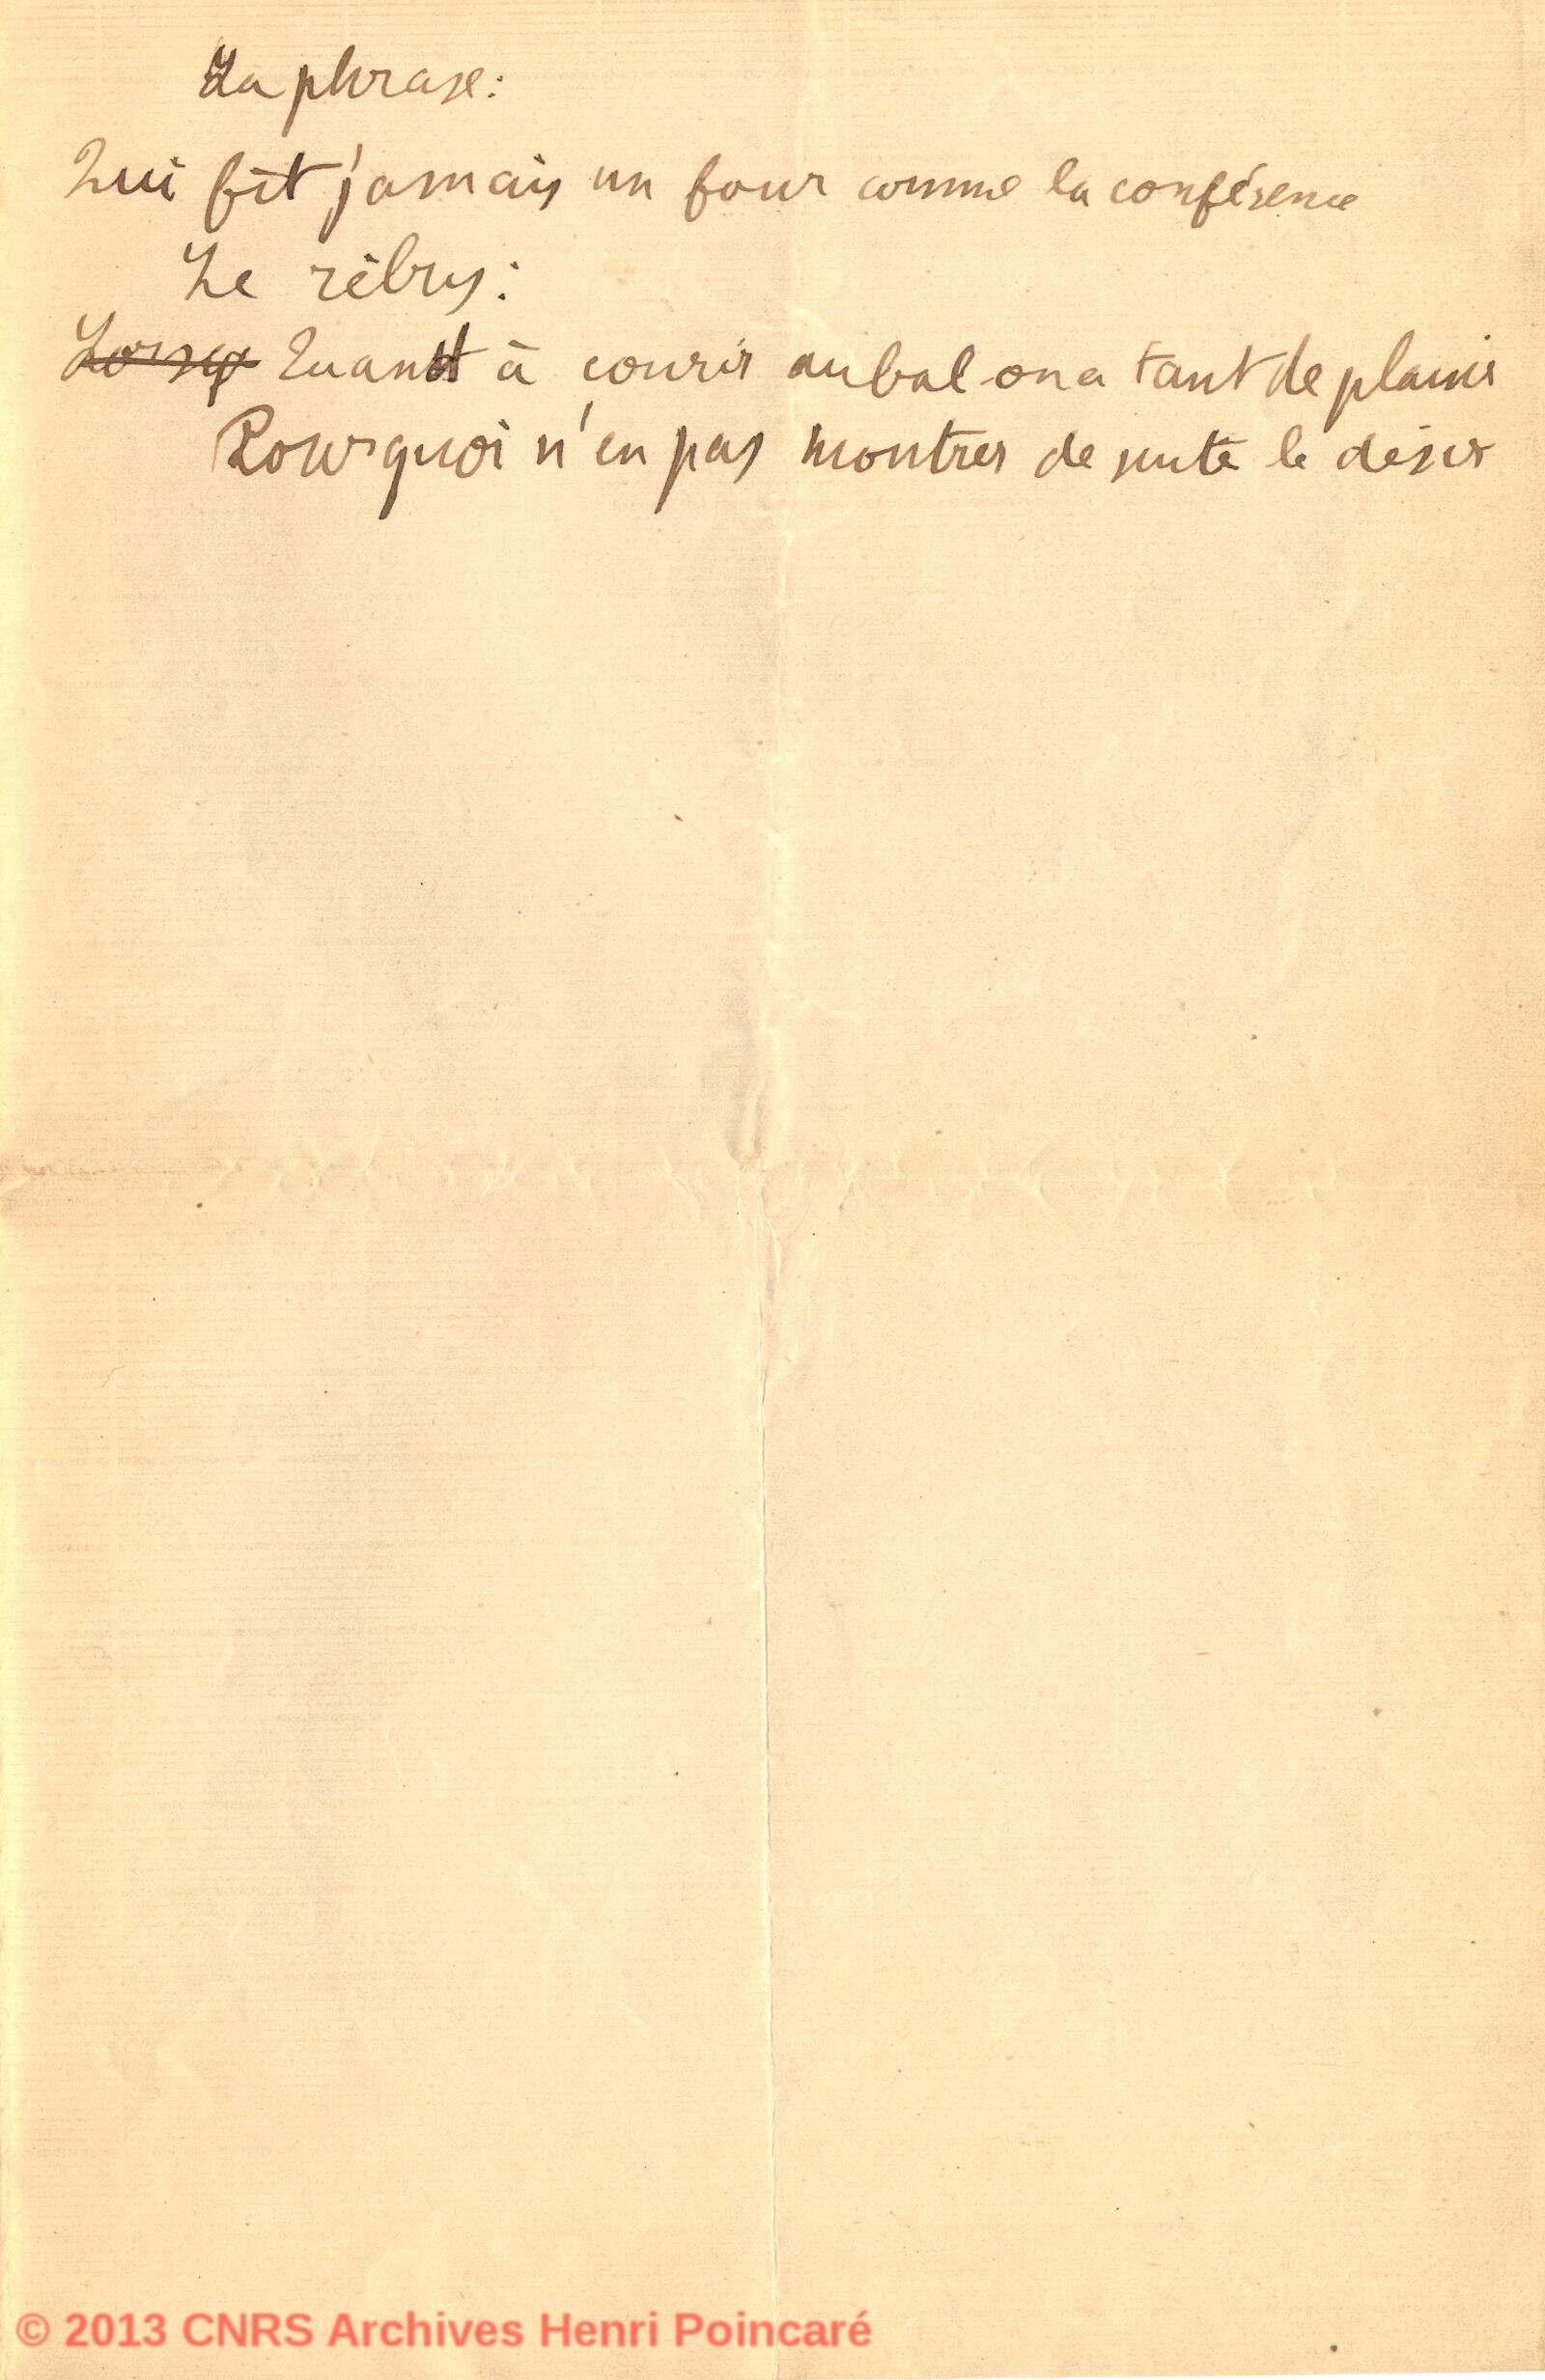 La phrase:
Qui fit jamais un four comme la conférence
Le rébus:
Lorsq Quand à courir au bal on a tant de plaisir
Pourquoi n'en pas montrer de suite le désir
© 2013 CNRS Archives Henri Poincaré